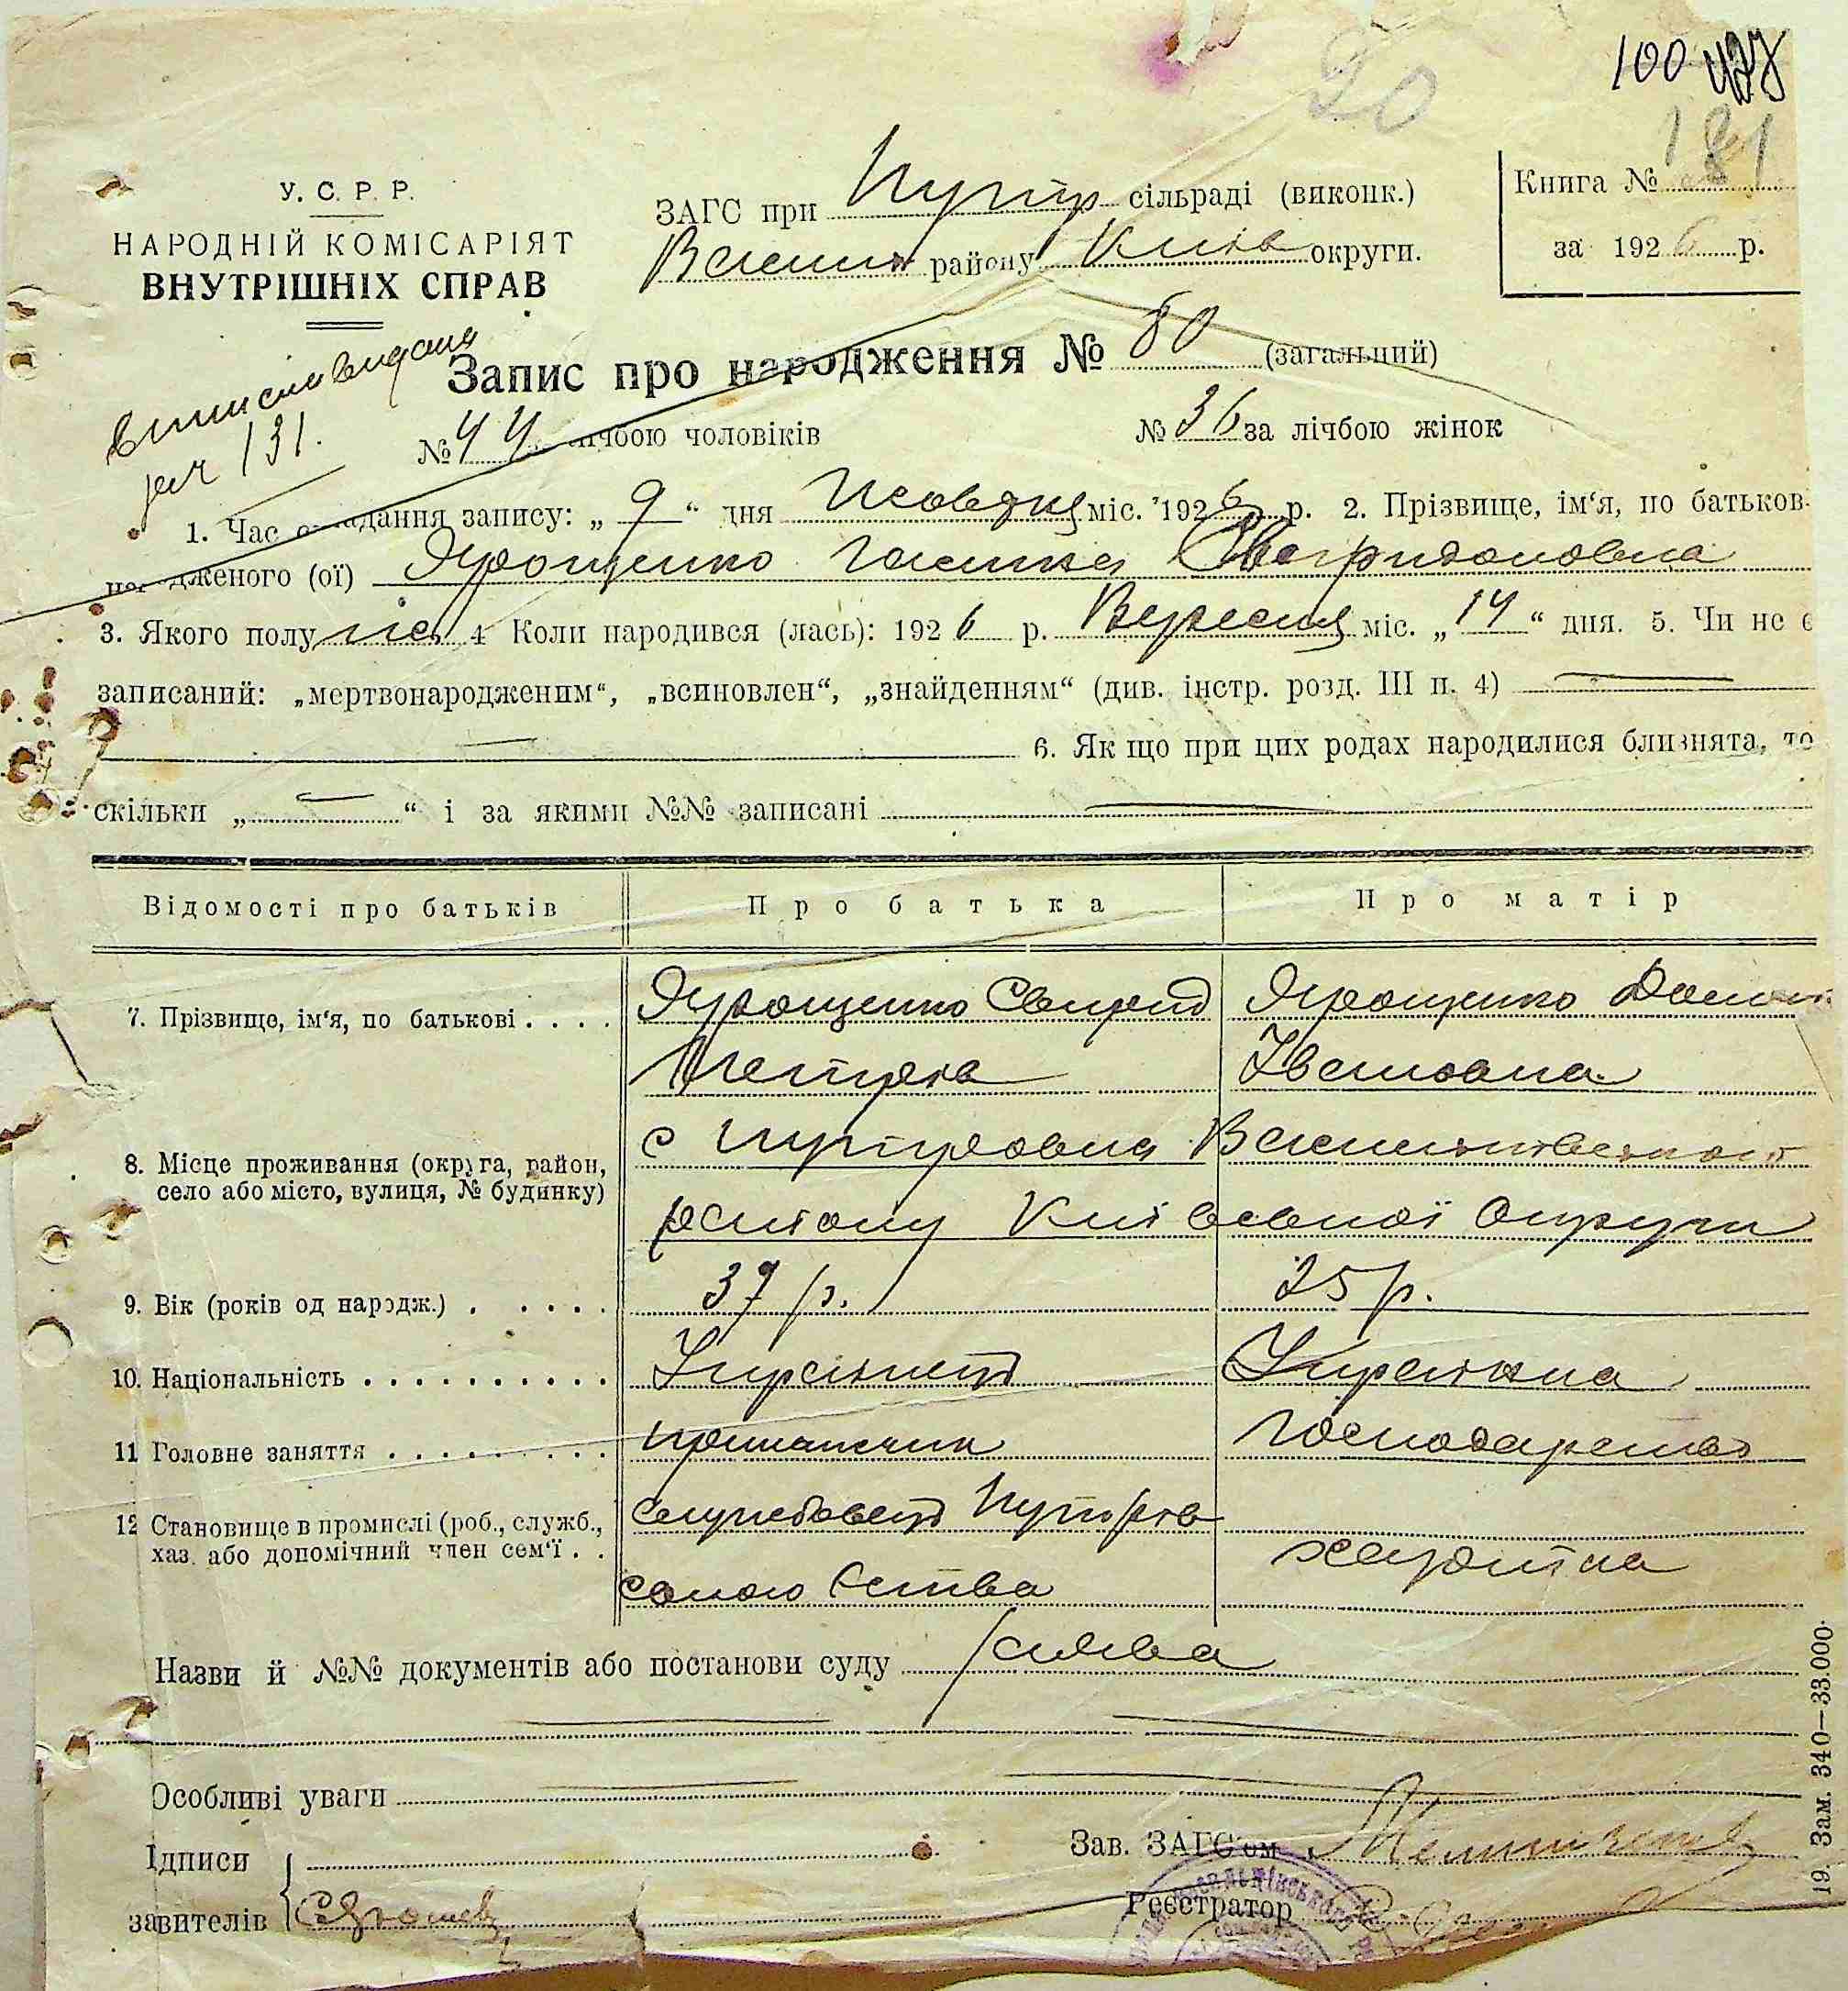 100
20
181
У. С. Р. Р.
НАРОДНІЙ КОМІСАРІЯТ
ВНУТРІШНІХ СПРАВ
ЗАГС при Путр сільраді (виконк.)
району Київ округи.
Книга №
за 1926 р.
Запис про народження № 80 (загальний)
виписка видана
131.
№ 44 лічбою чоловіків № 36 за лічбою жінок
1. Час складання запису: „ 9 “ дня Жовтня міс. 1926 р. 2. Прізвище, ім‘я, по батьков
народженого (ої) Ярощенко Галина Свиридоновна
3. Якого полу жін 4 Коли народився (лась): 1926 р. Вересня міс. „ 14 “ дня. 5. Чи не є
записаний: „мертвонародженим“, „всиновлен“, „знайденням“ (див. інстр. розд. III п. 4) —
— 6. Як що при цих родах народилися близнята, то
скільки „ — “ і за якими №№ записані —
Відомості про батьків Про батька Про матір
7. Прізвище, ім‘я, по батькові . . . . Ярощенко Свирид Ярощенко
Петров Івановна
8. Місце проживання (округа, район, с Путровка Васильківського
село або місто, вулиця, № будинку)
району Київської Округи
9. Вік (років од народж.) . . . . . 37 р. 25 р.
10. Національність . . . . . . . . . . Українець Українка
11 Головне заняття . . . . . . . . . прикащик господарство
12 Становище в промислі (роб., служб., службовець Путрів
хаз. або допомічний член сем‘ї . . хазяйка
Назви й №№ документів або постанови суду заява
Особливі уваги
Ідписи
Зав. ЗАГС‘ом
завителів
Реєстратор
19. Зам. 340—33.000.